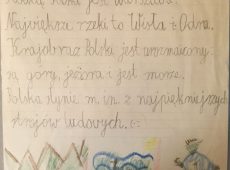 Polski jest Warszawa.
Największe rzeki to Wisła i Odra.
Krajobraz Polski jest urozmaicony:
są góry, jeziora i jest morze.
Polska słynie m.in. z najpiękniejszych
strojów ludowych.